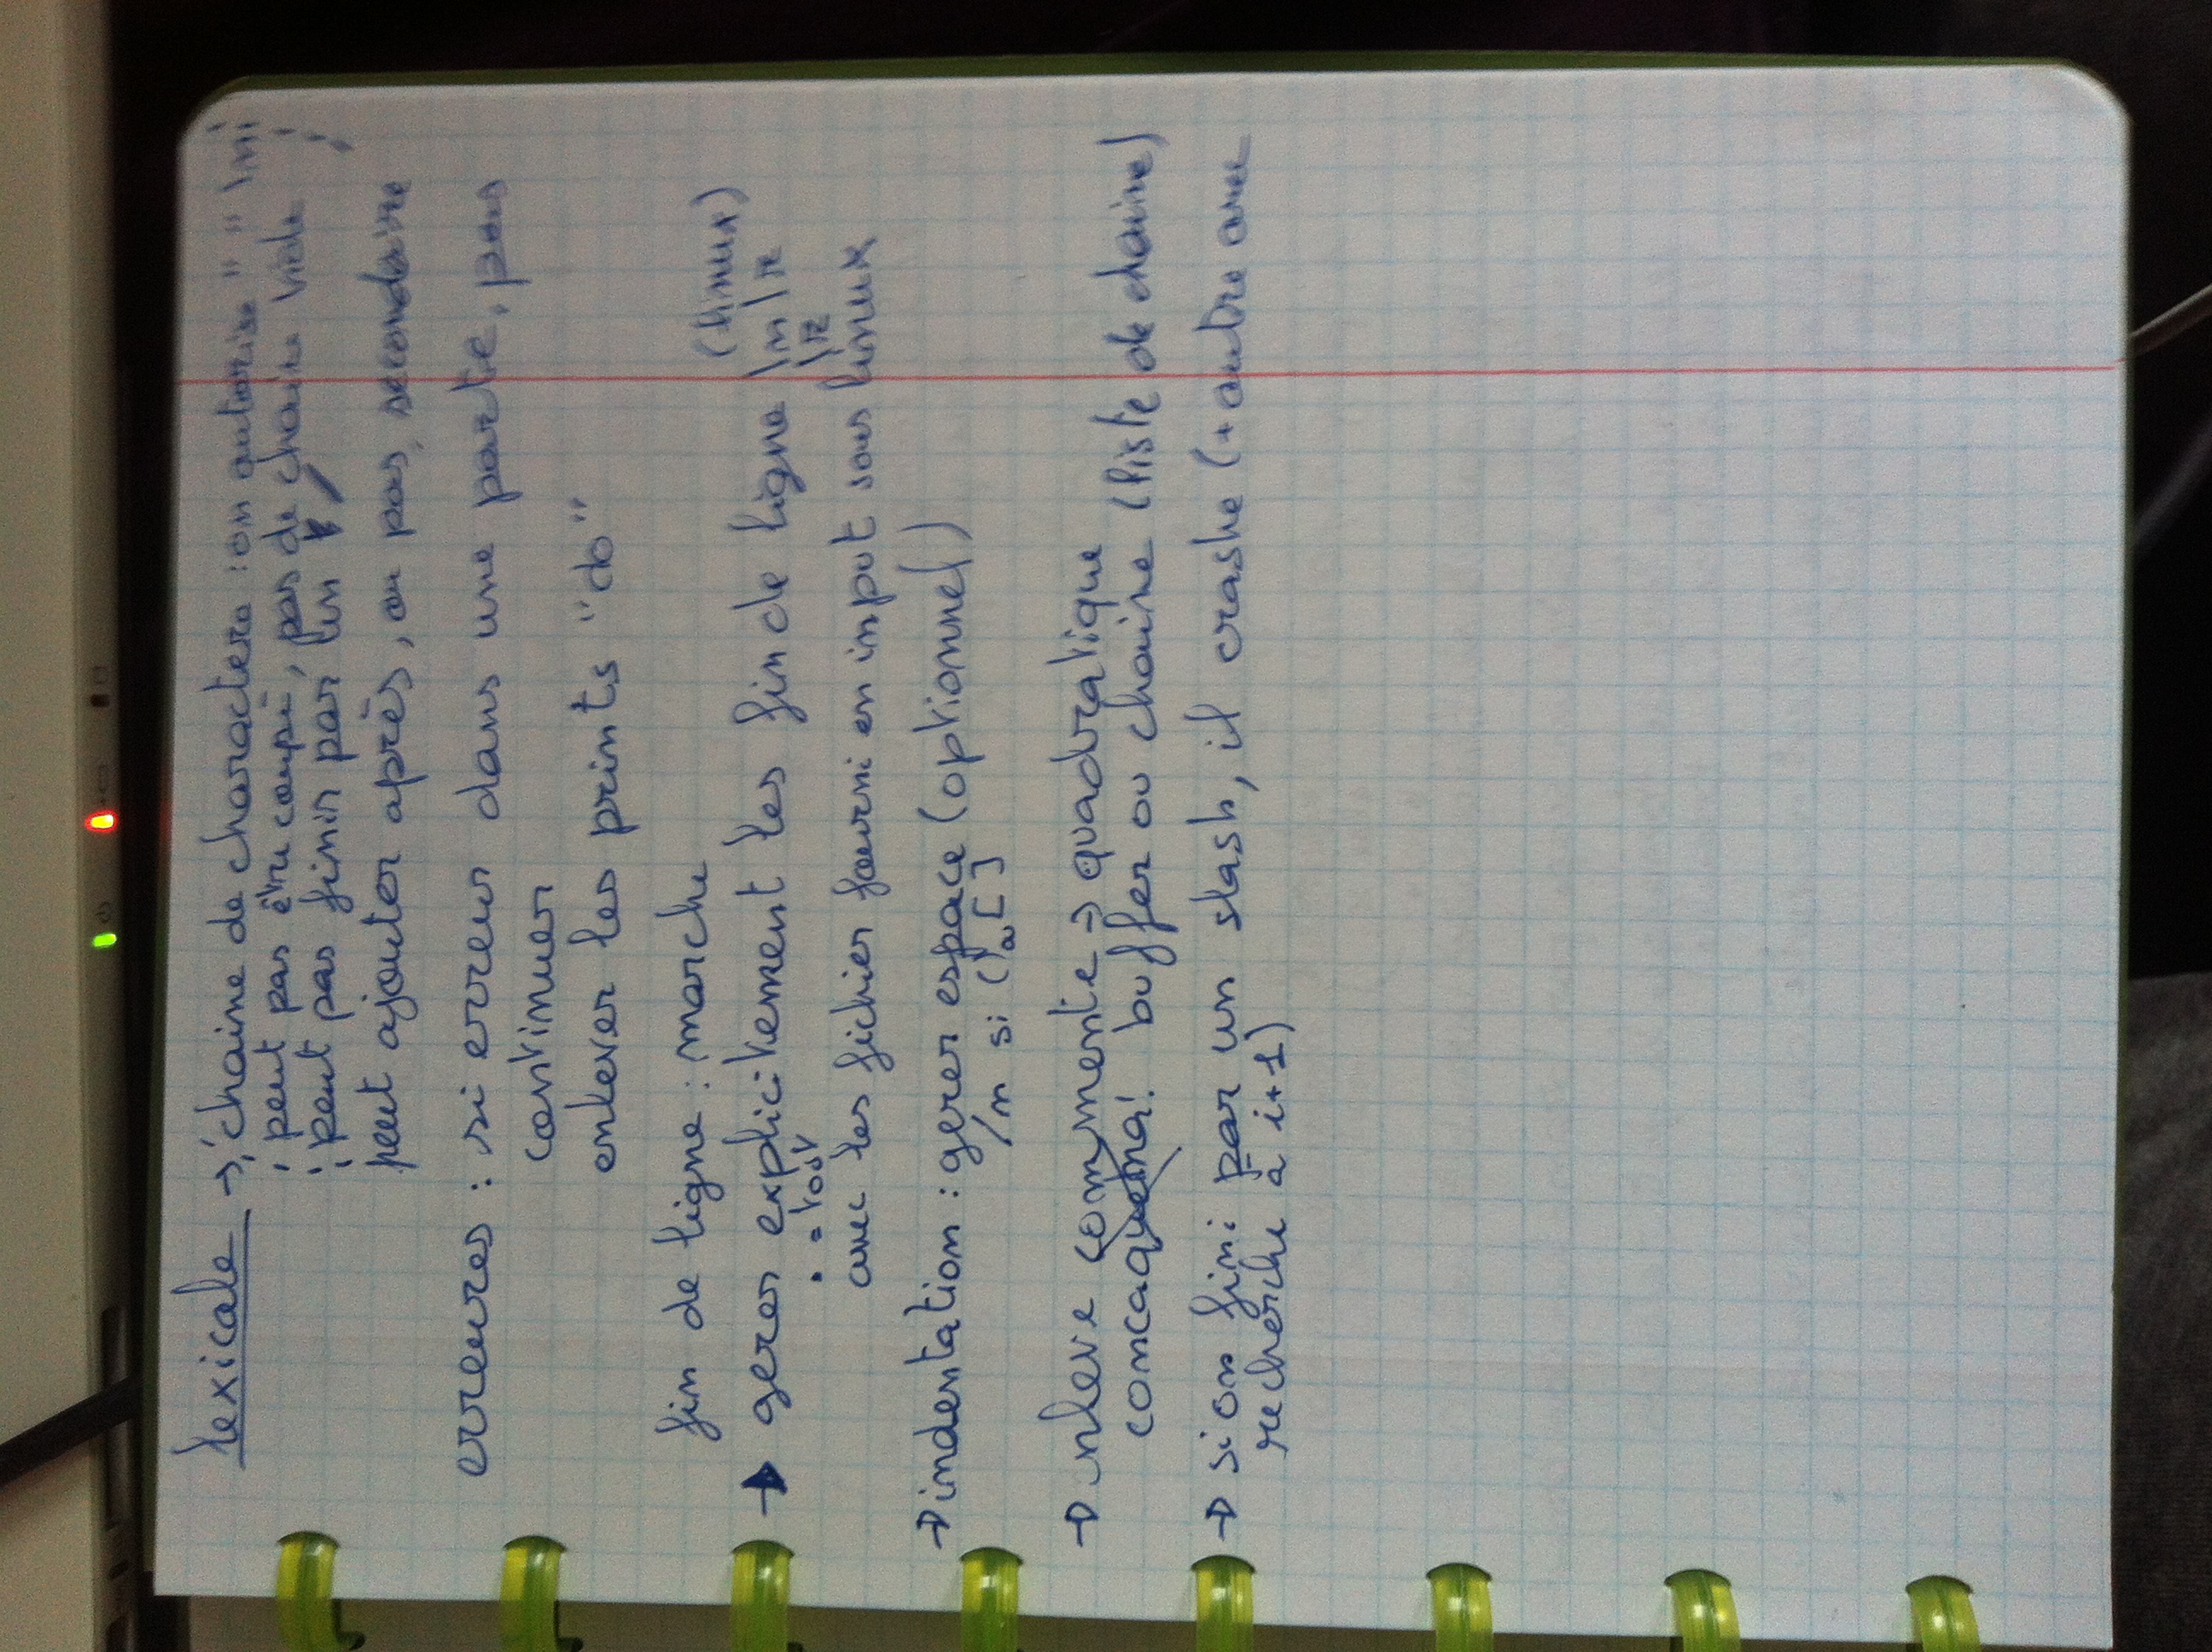 lexicale → chaine de charactere : on autorise " " \n
peut pas être coupé, pas de chaine vide
peut pas finir par un /
peut ajouter après, ou pas, secondaire
erreures : si erreur dans une partie, pas
continuer
enlever les prints "do"
fin de ligne : marche
(linux)
→ gerer explicitement les fin de ligne \n \r
. = tout \r
avec les fichier fourni en input sous linux
→ indentation : gerer espace (optionnel)
/n si () a []
→ nleve commente → quadratique
buffer ou chaine (liste de chaine)
→ si on fini par un slash, il crashe (+ autre avec
recherche à i+1)